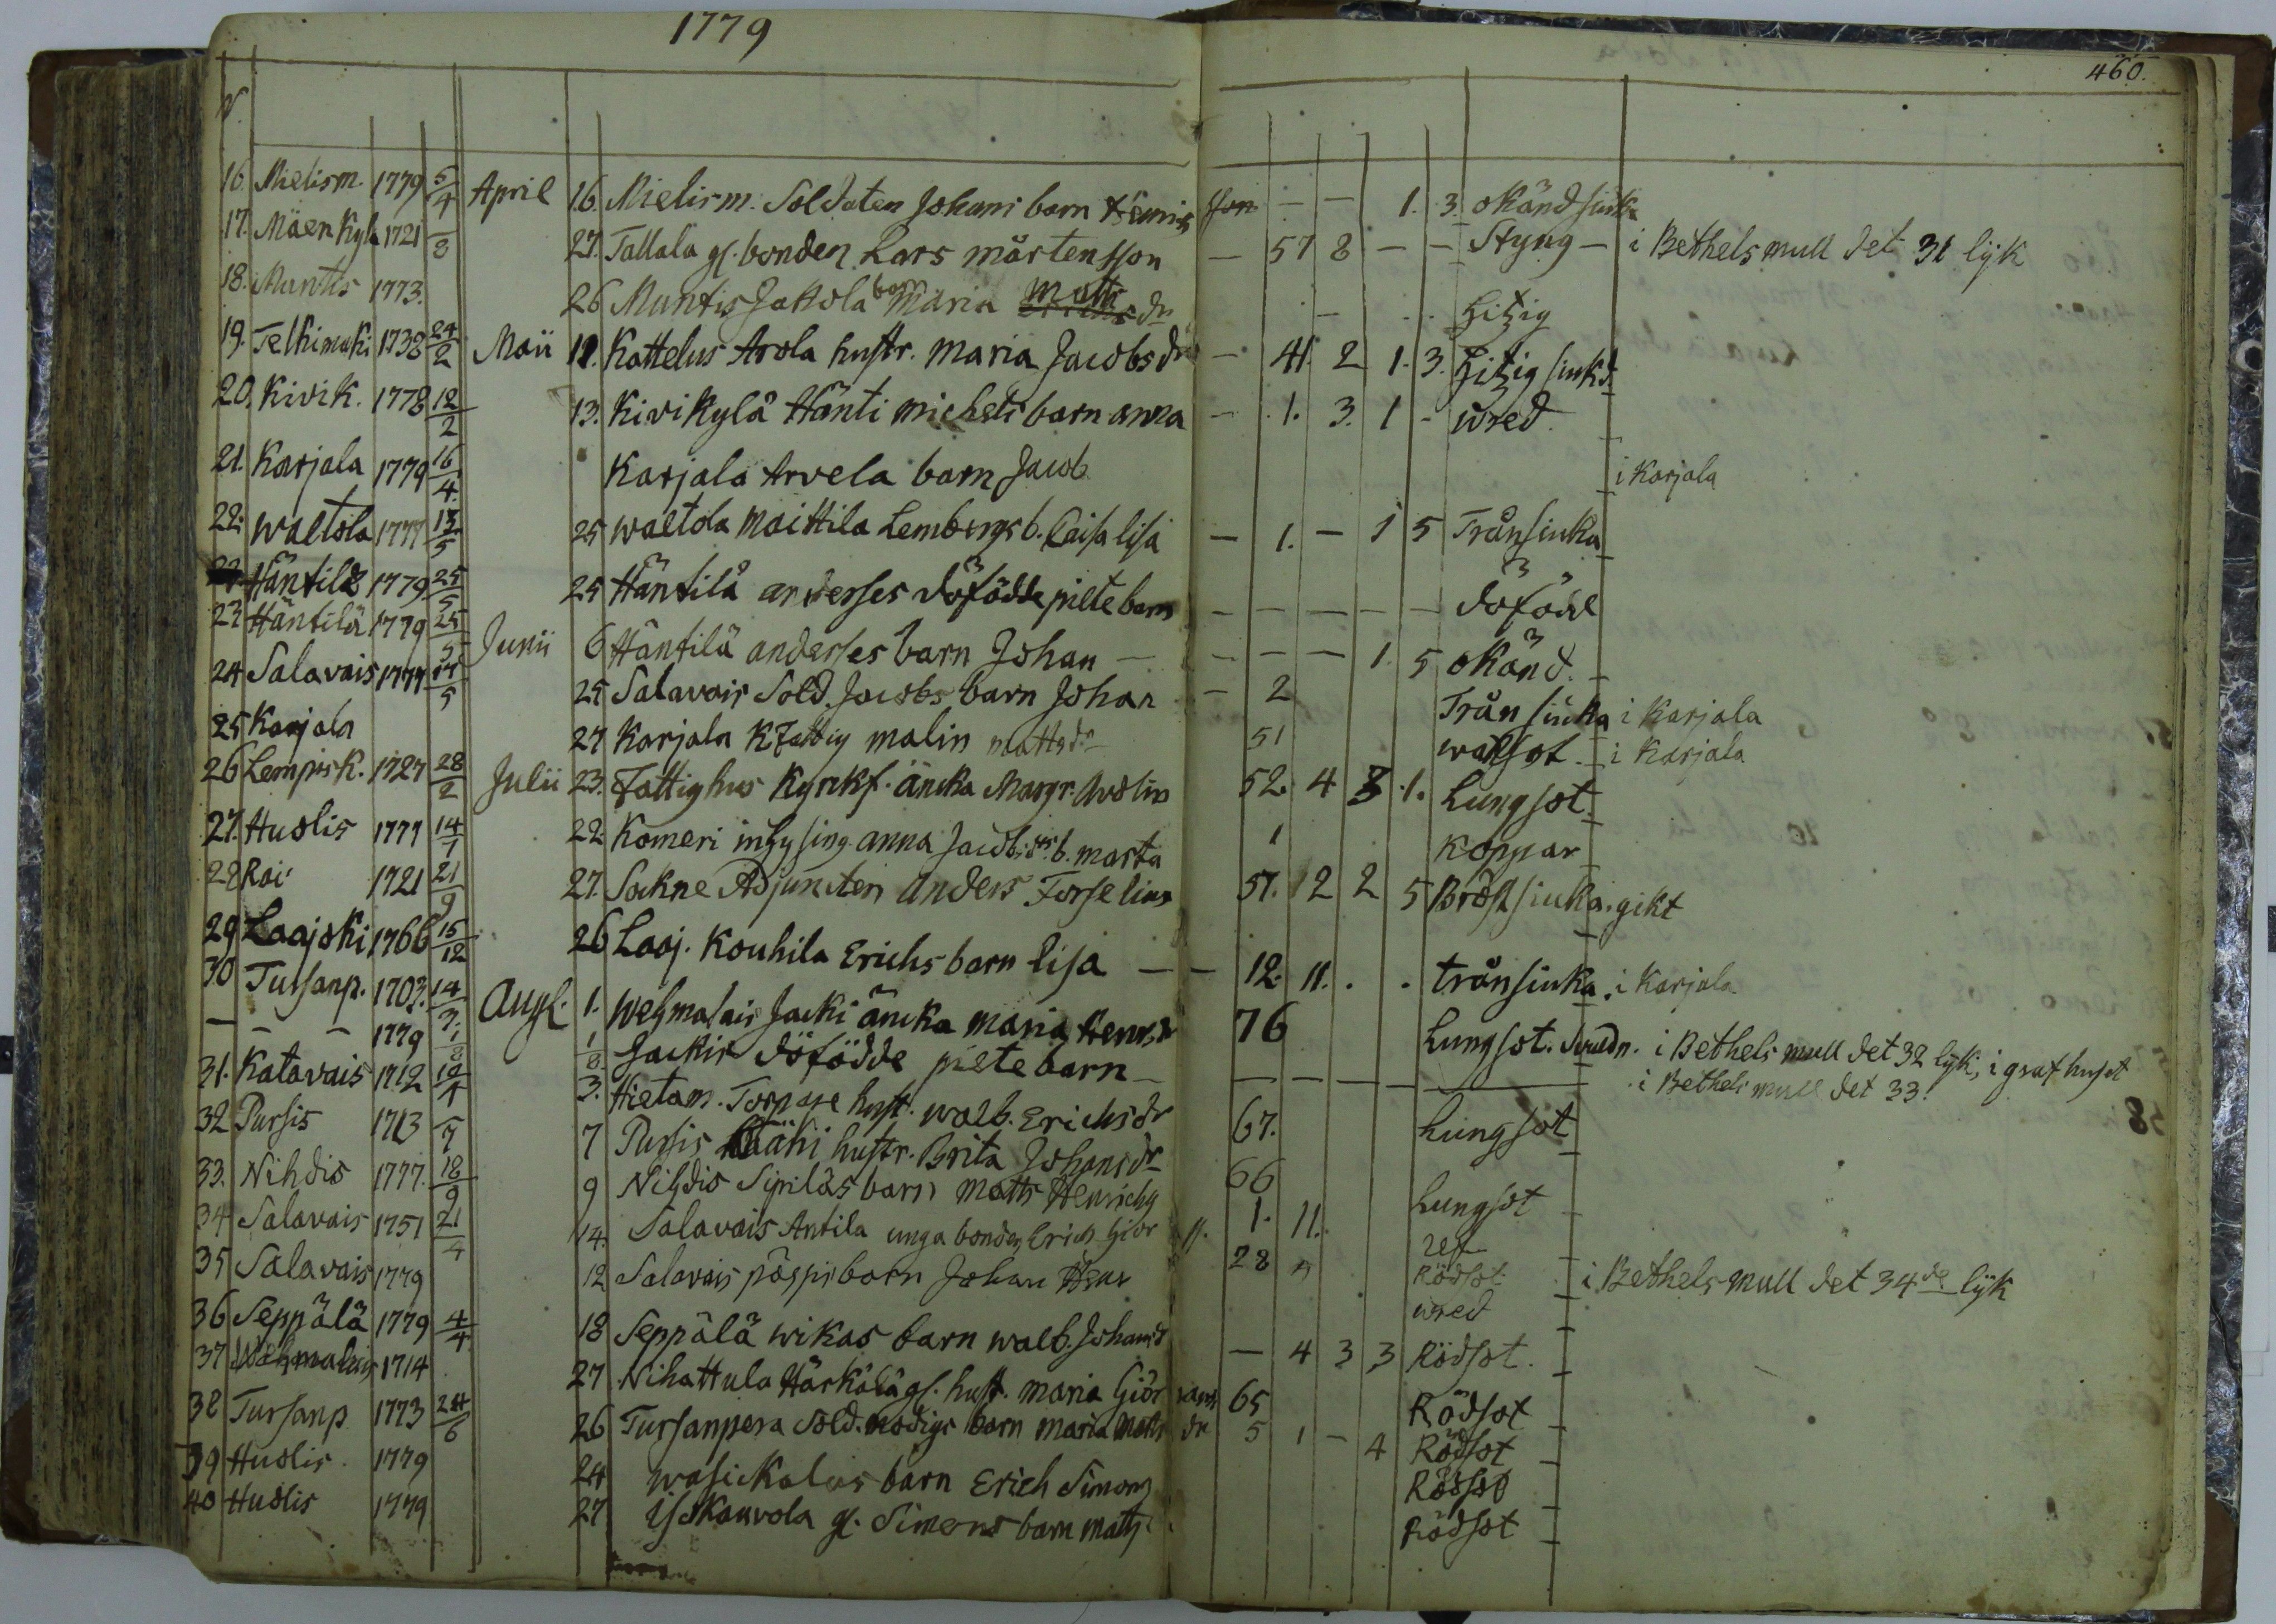 1779
460.
N.
16. Mielism. 1779 5/4 April 16. Mielism. Soldaten Johans barn Henrics son — — 1. 3. okänd siuka
17. Mäenkylä 1721 /8 27. Tallala gl. bonden Lars mårtensson — 57 8 — — Styng — i Bethels mull det 31 lyk
18. Muntis 1773. 26 Muntis Jakola barn Maria Matts dr — hitzig
19. Telkimäki 1738 24/2 Maii 11. Kattelus Arola hustr. Maria Jacobs dr — 41. 2 1. 3. hitzig siukd.
20. Kivik. 1778 12/2 13. Kivikylä Hänti michels barn anna — 1. 3. 1 - wred.
21. Karjala 1779 16/4 Karjala Arvela barn Jacob i Karjala
22. waltola 1777 13/5 25 waltola maittila Lembergs b. Caisa lisa — 1. — 1 5 Trånsiuka
Häntilä 1779 25/5 25 Häntilä anderses döfödde pilte barn — — — — — döfödd
23 Häntilä 1779 25/5 Junii 6 Häntilä anderses barn Johan — — — — 1. 5 okänd.
24 Salavais 1777 /5 25 Salavais Sold. Jacobs barn Johan — 2 Trånsiuka i Karjala
25 Karjala 27 Karjala malin mattsdr 51 wattsot. i Karjala
26 Lempisk. 1727 28/2 Julii 23. Fattighus Kyrkf. änka Margr. 52. 4 3 1. Lungsot.
27. Huolis 1777 14/1 22. Komeri inhysing. anna Jacobs dr. b. marta 1 Koppar
28 Roi 1721 21/9 27. Sockne Adjuncten Anders Forselius 57. 12 2 5 Bröstsiuka. gikt
29 Laajoki 1766 15/12 26 Laaj. Kouhila Erichs barn lisa — — 12. 11. . . trånsiuka. i Karjala
30 Tursanp. 1703. 14/3 Augt. 1. wehmalais Jacki änka maria Henr. dr 76 Lungsot. i Bethels mull det 32 lyk, i grafhuset
— — — 1779 1/8 1/8 Jackis döfödde pilte barn — — — — — i Bethels mull det 33.
31. Katavais 1712 12/1 3. Hietam. Torpare hust. walb. Erichs dr 67. Lungsot
32 Pursis 1713 /7 7 Pursis hustr. Brita Johans dr 66 Lungsot
33. Nihdis 1777. 18/9 9 Nihdis Sipiläs barn matts Henrichs 1. 11. ref
34 Salavais 1751 21/4 14. Salavais Antila unga bonden Erich Giör s. 28 Rödsot i Bethels mull det 34de lyk
35 Salavais 1779 12 Salavais barn Johan Henr wred
36 Seppälä 1779 4/4. 18 Seppälä wikas barn walb. Johans d — 4 3 3 Rödsot.
37 Wehmalais 1714 27 Nihattula Härkälä gl. hust. maria Giör rans 65 Rödsot
38 Tursanp 1773 24/6 26 Tursanpera Sold. modigs barn maria Matts dr 5 1 — 4 Rödsot
39 Huolis. 1779 24 wasickalas barn Erich Simons Rödsot
40 Huolis 1779 27 Iskauvola gl. Simons barn matts Rödsot